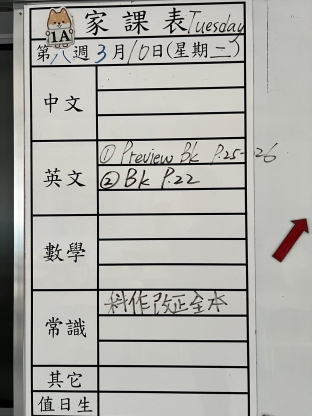 1A 家課表 Tuesday
第八週 3月10日(星期二)
中文
英文
① Preview Bk P.25-26
② Bk P.22
數學
常識
科作改正全本
其它
值日生